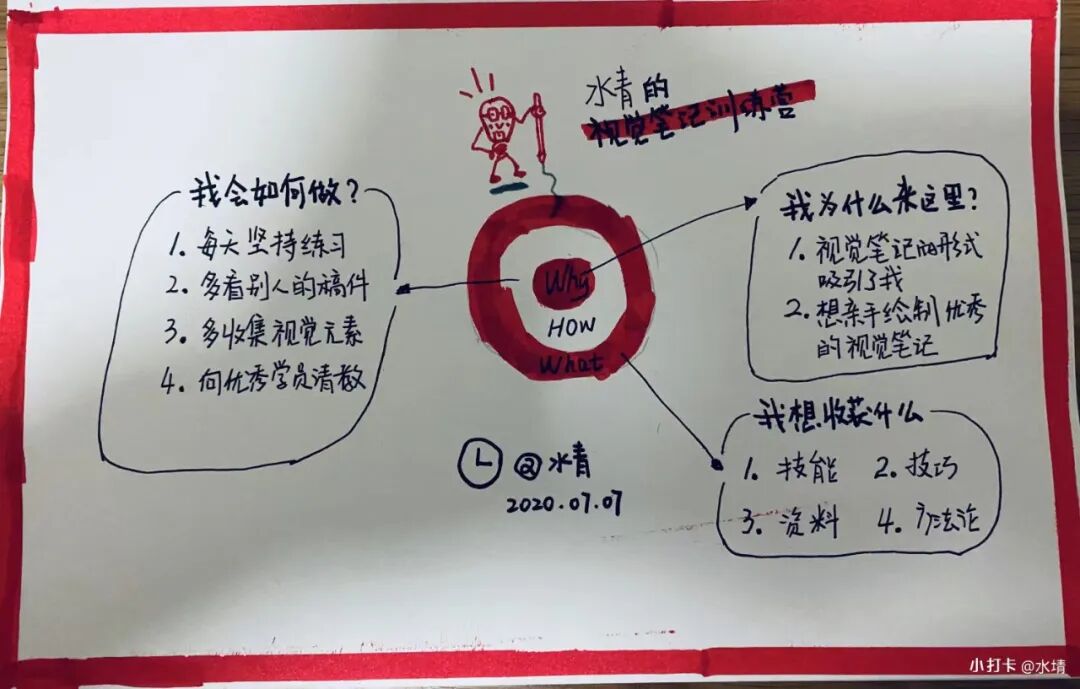 水青的
视觉笔记训练营
我会如何做?
1. 每天坚持练习
2. 多看别人的稿件
3. 多收集视觉元素
4. 向优秀学员请教
Why
HOW
What
我为什么来这里?
1. 视觉笔记的形式
吸引了我
2. 想亲手绘制优秀
的视觉笔记
我想收获什么
1. 技能 2. 技巧
3. 资料 4. 方法论
@水青
2020.07.07
小打卡 @水埥